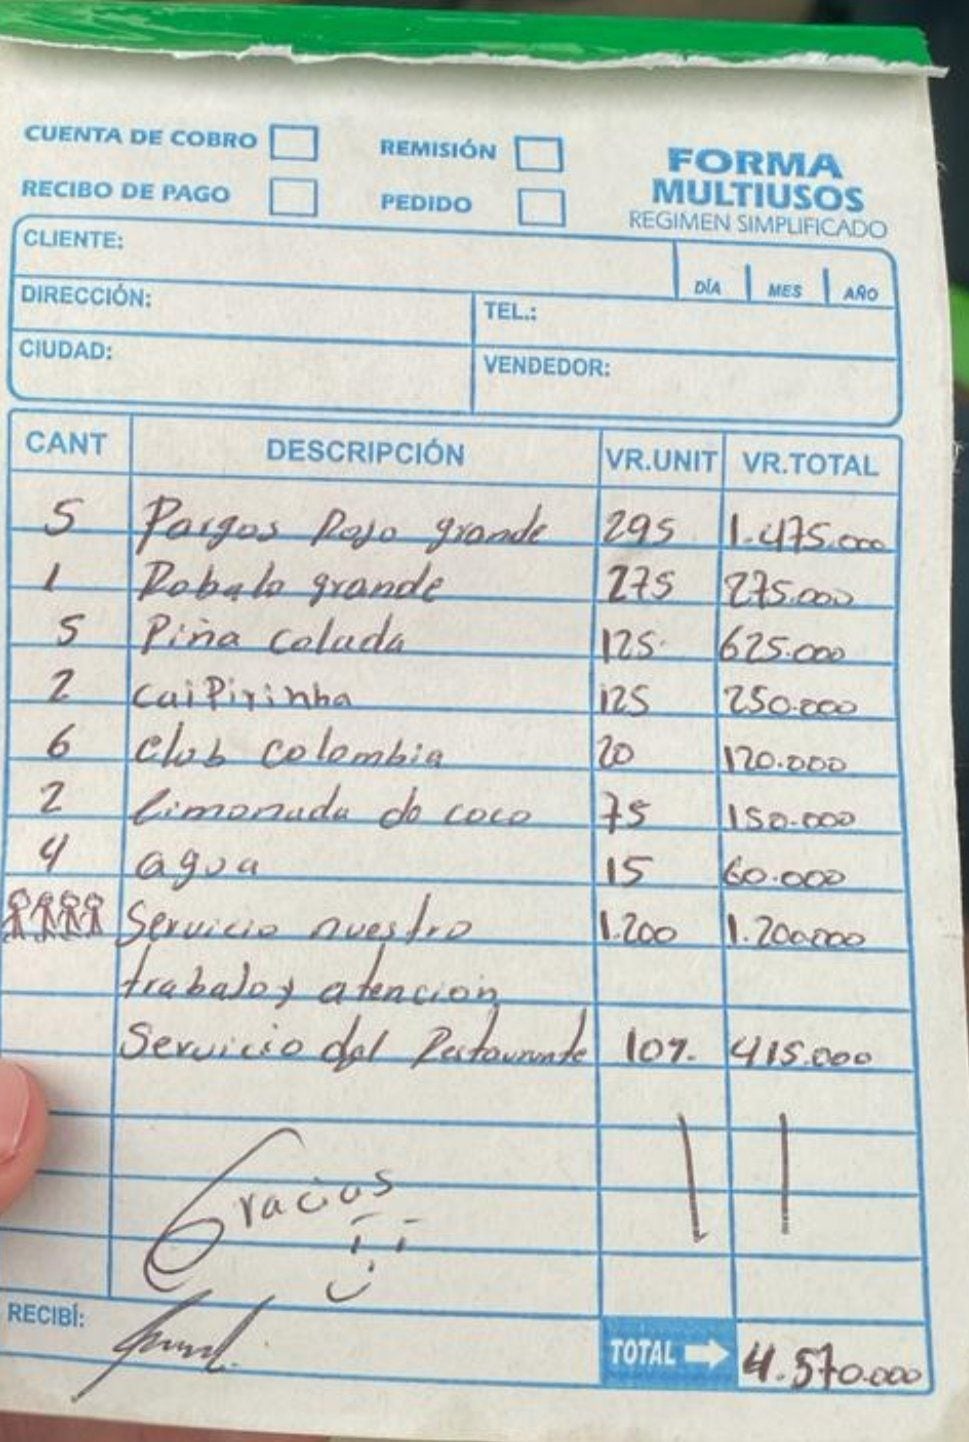 CUENTA DE COBRO REMISIÓN
RECIBO DE PAGO PEDIDO
FORMA
MULTIUSOS
REGIMEN SIMPLIFICADO
CLIENTE:
DÍA MES AÑO
DIRECCIÓN: TEL.:
CIUDAD: VENDEDOR:
CANT DESCRIPCIÓN VR.UNIT VR.TOTAL
5 Pargos Rojo grande 295 1.475.000
1 Robalo grande 275 275.000
5 Piña Colada 125 625.000
2 caiPirinha 125 250.000
6 Club Colombia 20 120.000
2 limonada de coco 75 150.000
4 agua 15 60.000
Servicio nuestro 1.200 1.200.000
trabalo y atencion
Servicio del Restaurante 10% 415.000
Gracias
RECIBÍ:
TOTAL 4.570.000